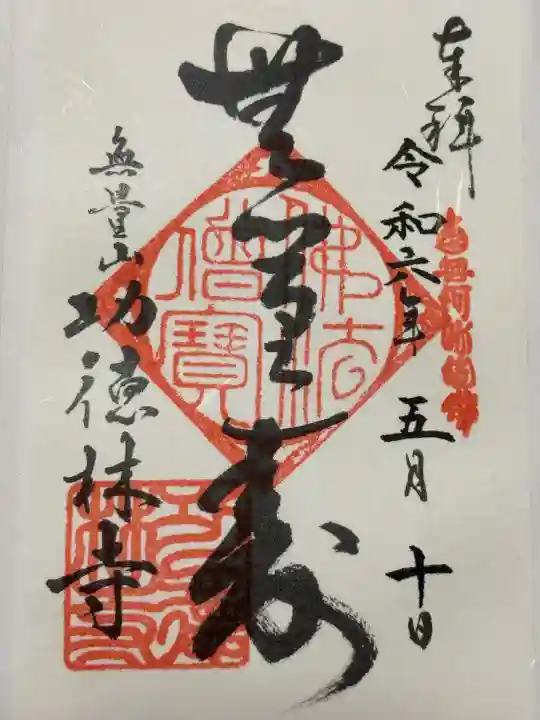 奉拝
令和六年 五月 十日
無量寿
佛法
僧寶
無量山 功徳林寺